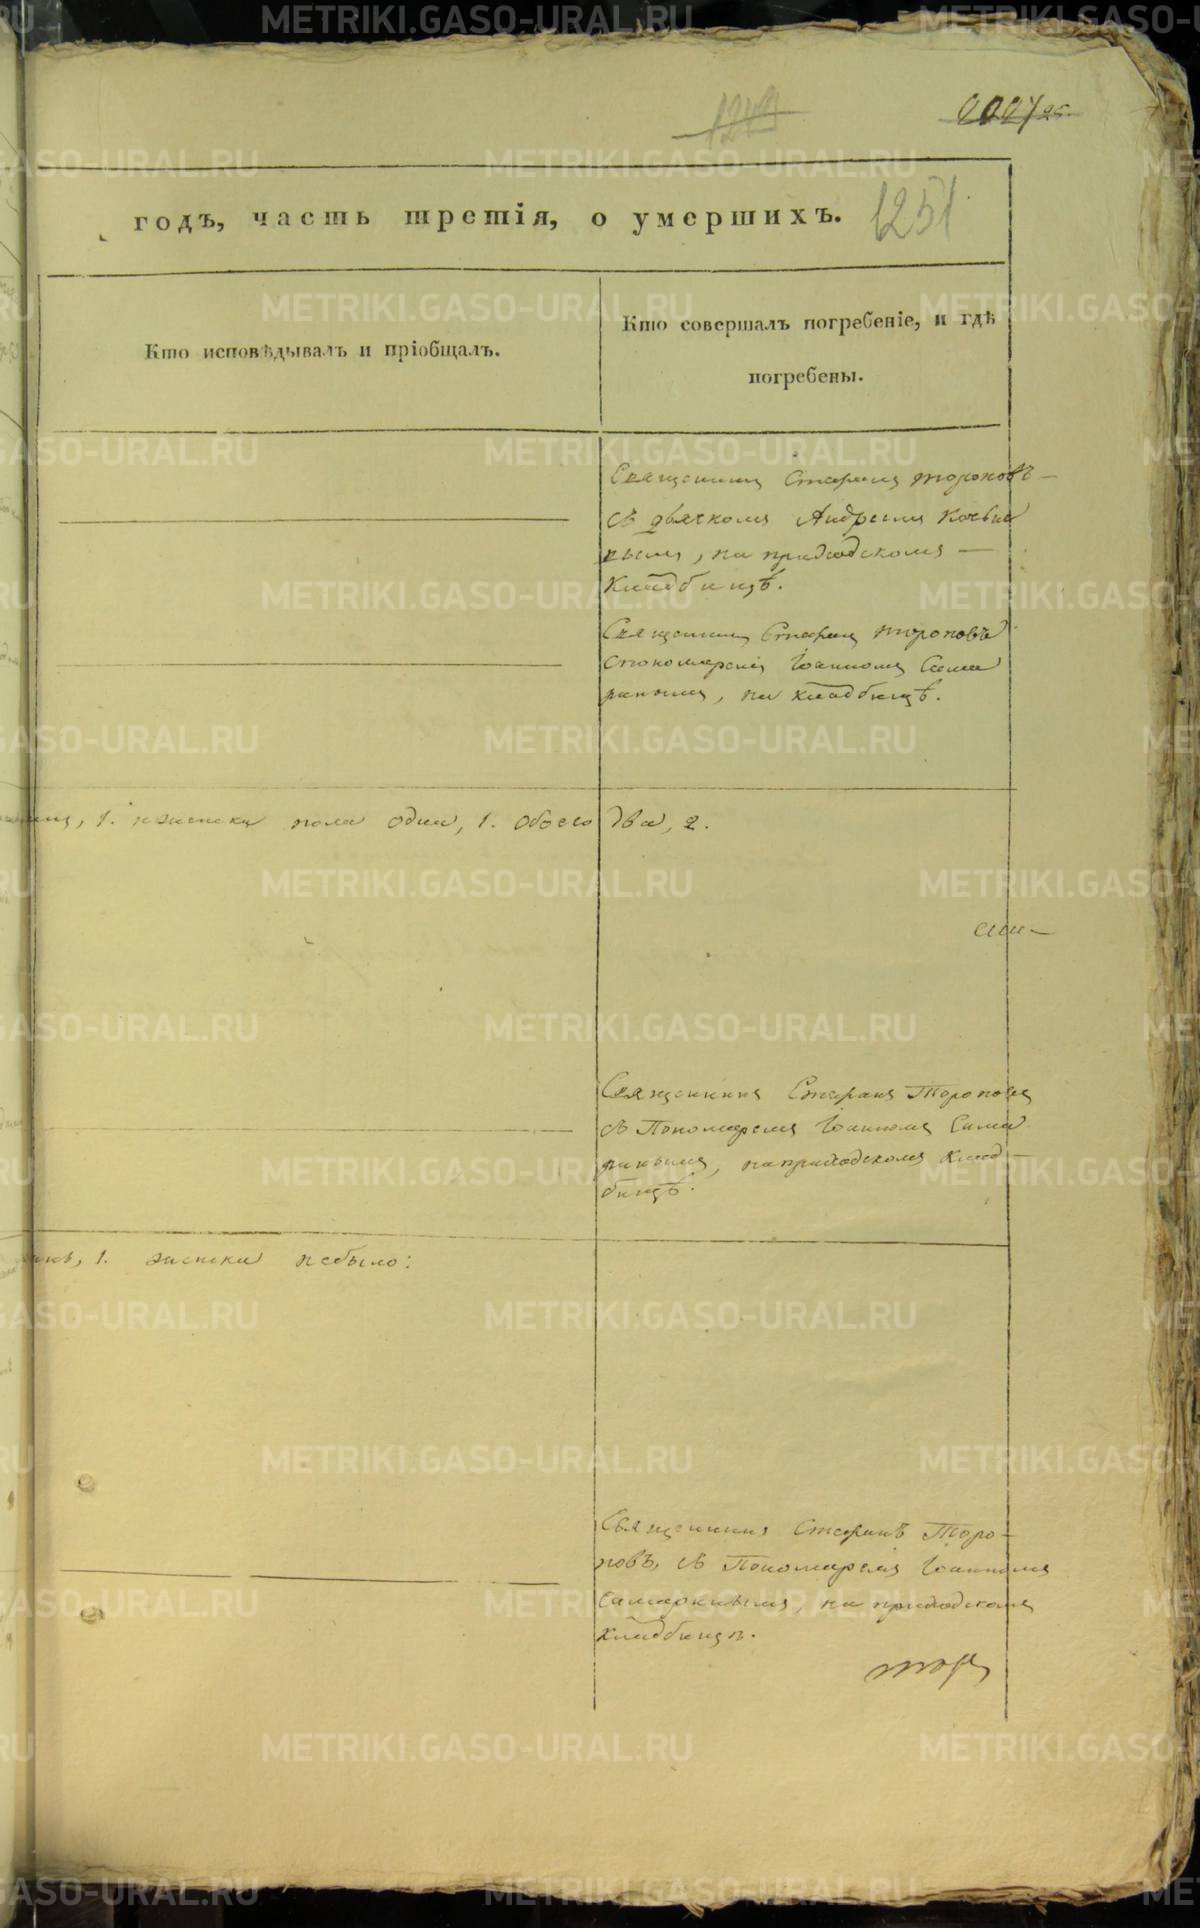 1251
годъ, часть третія, о умершихъ.
Кто исповѣдывалъ и пріобщалъ.
Кто совершалъ погребеніе, и гдѣ
погребены.
Священникъ Стефанъ Тороповъ
съ дьячкомъ Андреемъ
на приходскомъ
кладбищѣ.
Священникъ Стефанъ Тороповъ
с пономаремъ Іоанномъ Сама
ринымъ, на кладбищѣ.
1. женска пола одна, 1. обоего два, 2.
Священникъ Стефанъ Тороповъ
съ Пономаремъ Іоанномъ Сама
ринымъ, на приходскомъ клад
бищѣ.
1. женска небыло:
Священникъ Стефанъ Торо-
повъ, съ Пономаремъ Іоанномъ
на приходскомъ
кладбищѣ.
METRIKI.GASO-URAL.RU